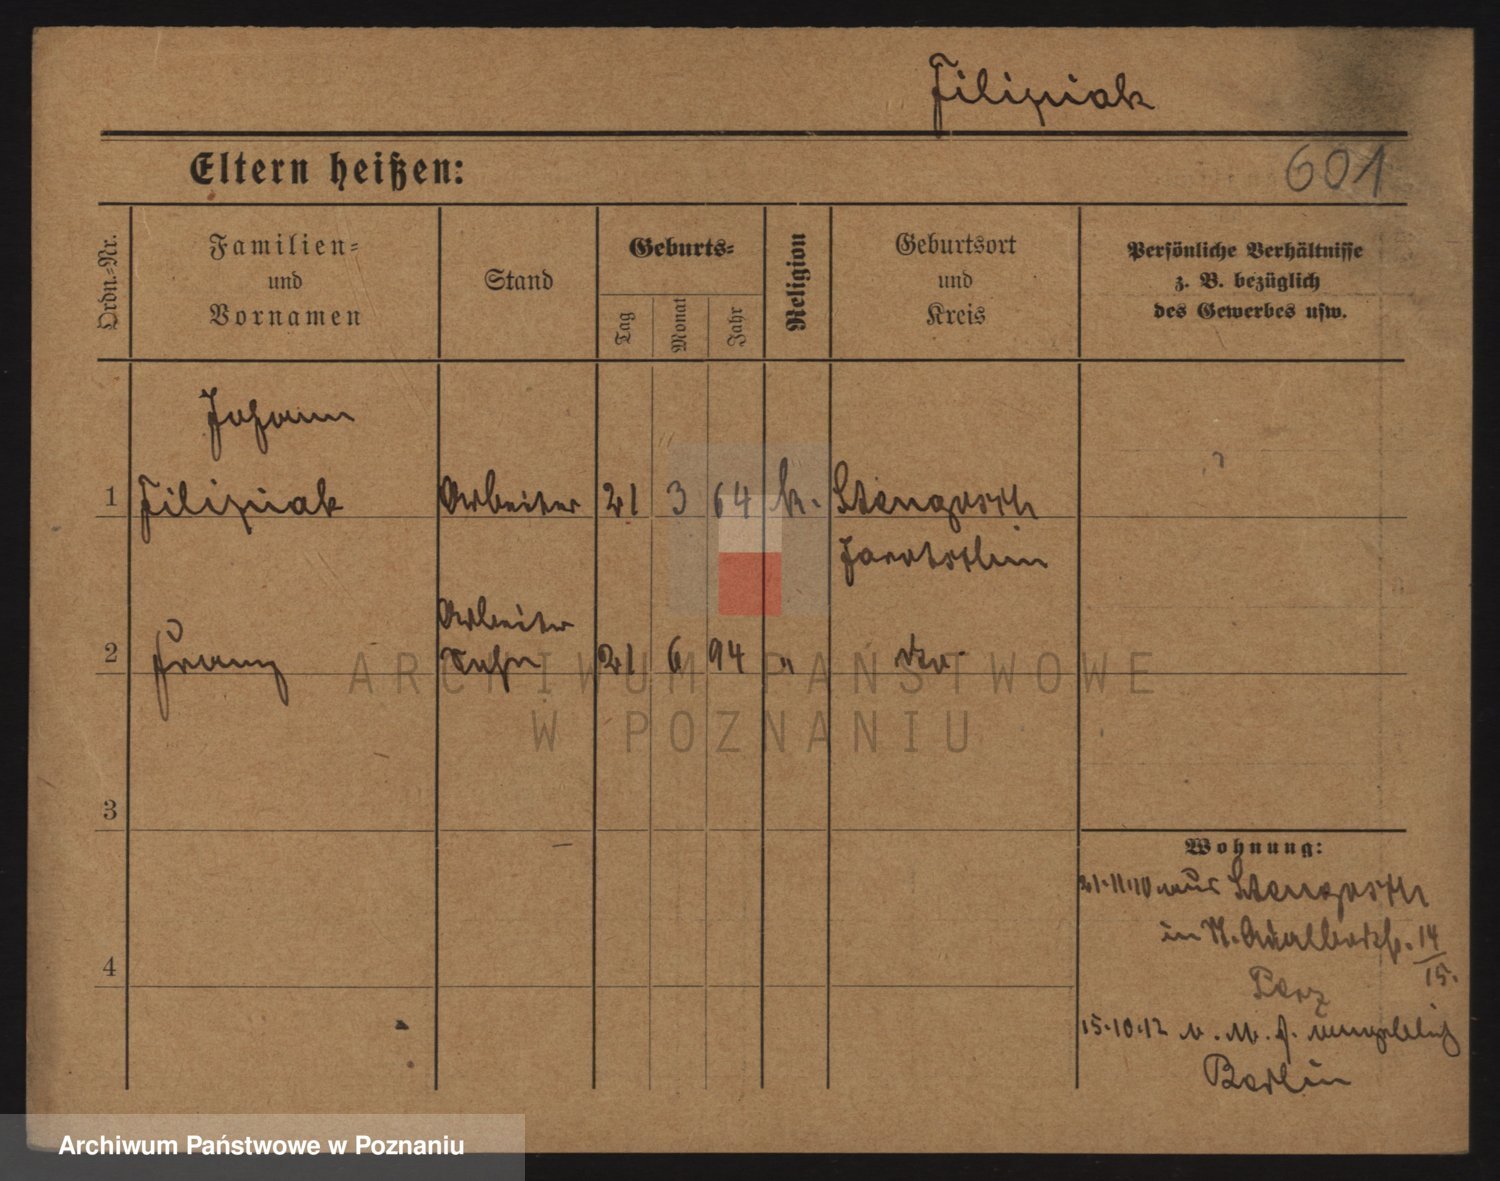 Filipiak
Eltern heißen:
601
Ordn.-Nr.
Familien-
und
Vornamen
Stand
Geburts-
Tag
Monat
Jahr
Religion
Geburtsort
und
Kreis
Persönliche Verhältnisse
z. B. bezüglich
des Gewerbes usw.
Johann
1 Filipiak Arbeiter 21 3 64 k.
Jarotschin
Arbeiter
2 Franz Sohn 21 6 94 " do.
ARCHIWUM PAŃSTWOWE
W POZNANIU
3
4
Wohnung:
21.11.10 aus
in St. Adalbertstr. 14
15.
15.10.12 angeblich
Berlin
Archiwum Państwowe w Poznaniu